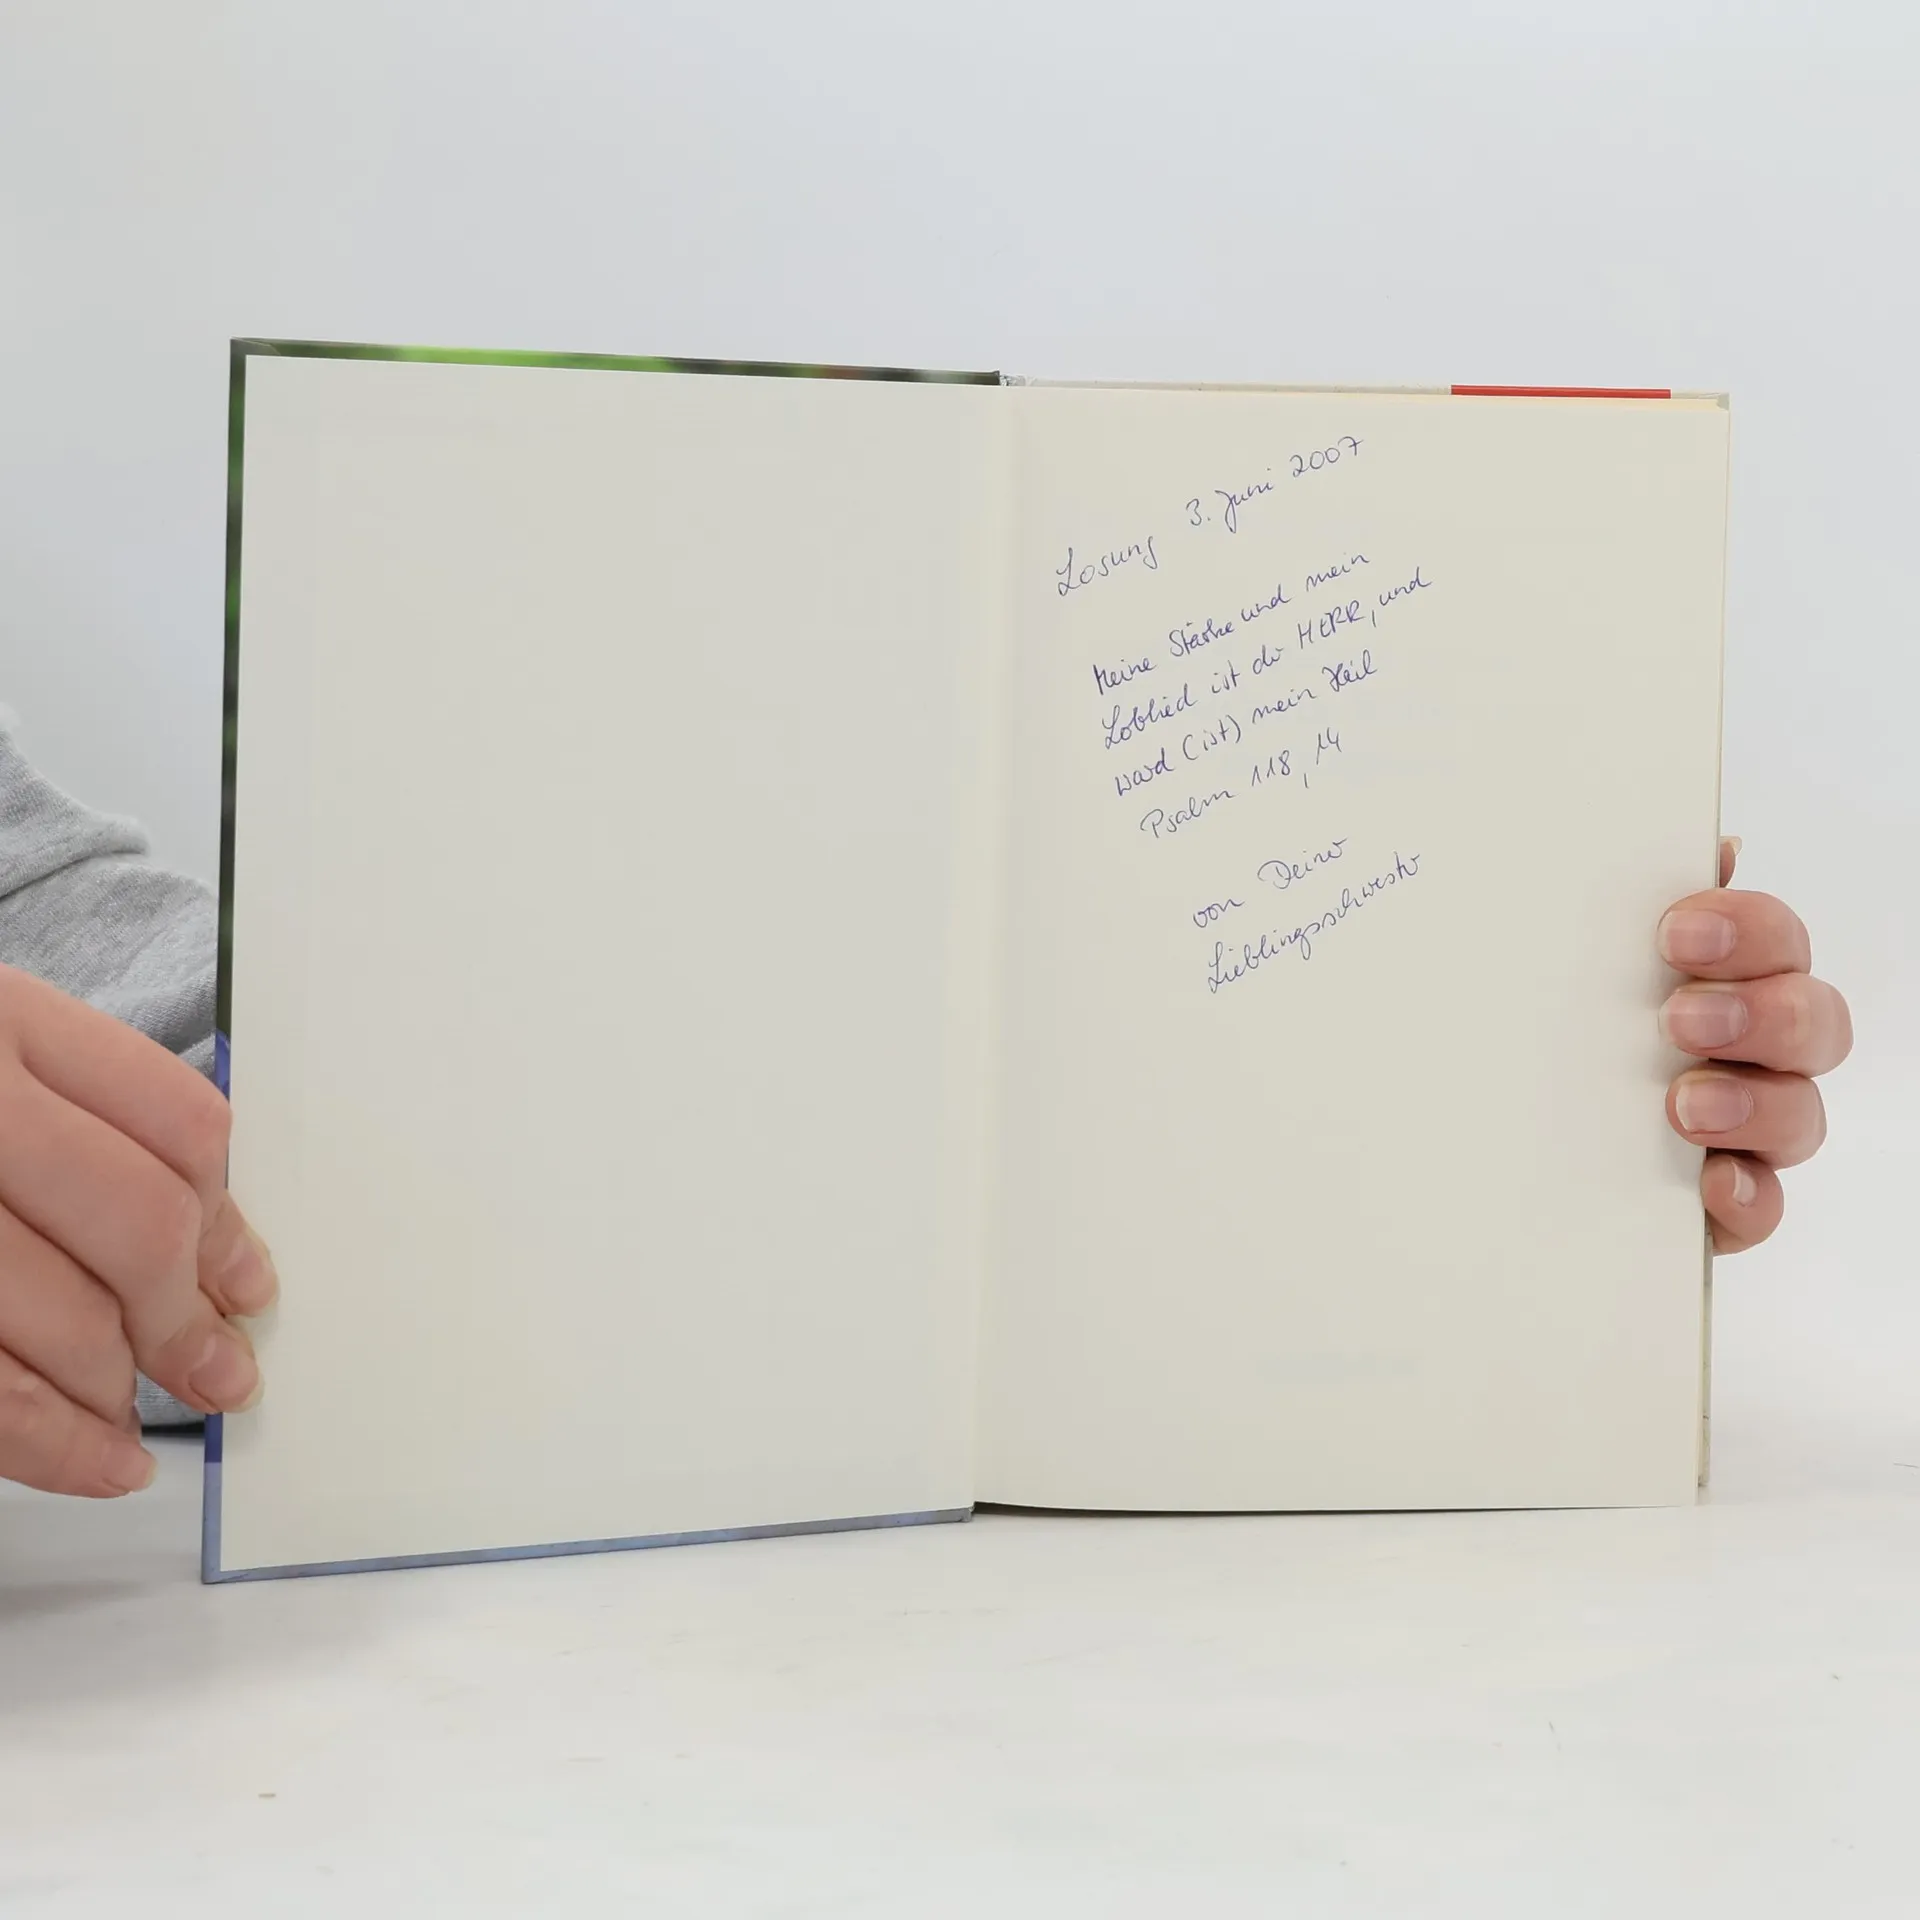 Losung 3. Juni 2007
Meine Stärke und mein
Loblied ist der HERR, und
ward (ist) mein Heil
Psalm 118, 14
von Deiner
Lieblingsschwester